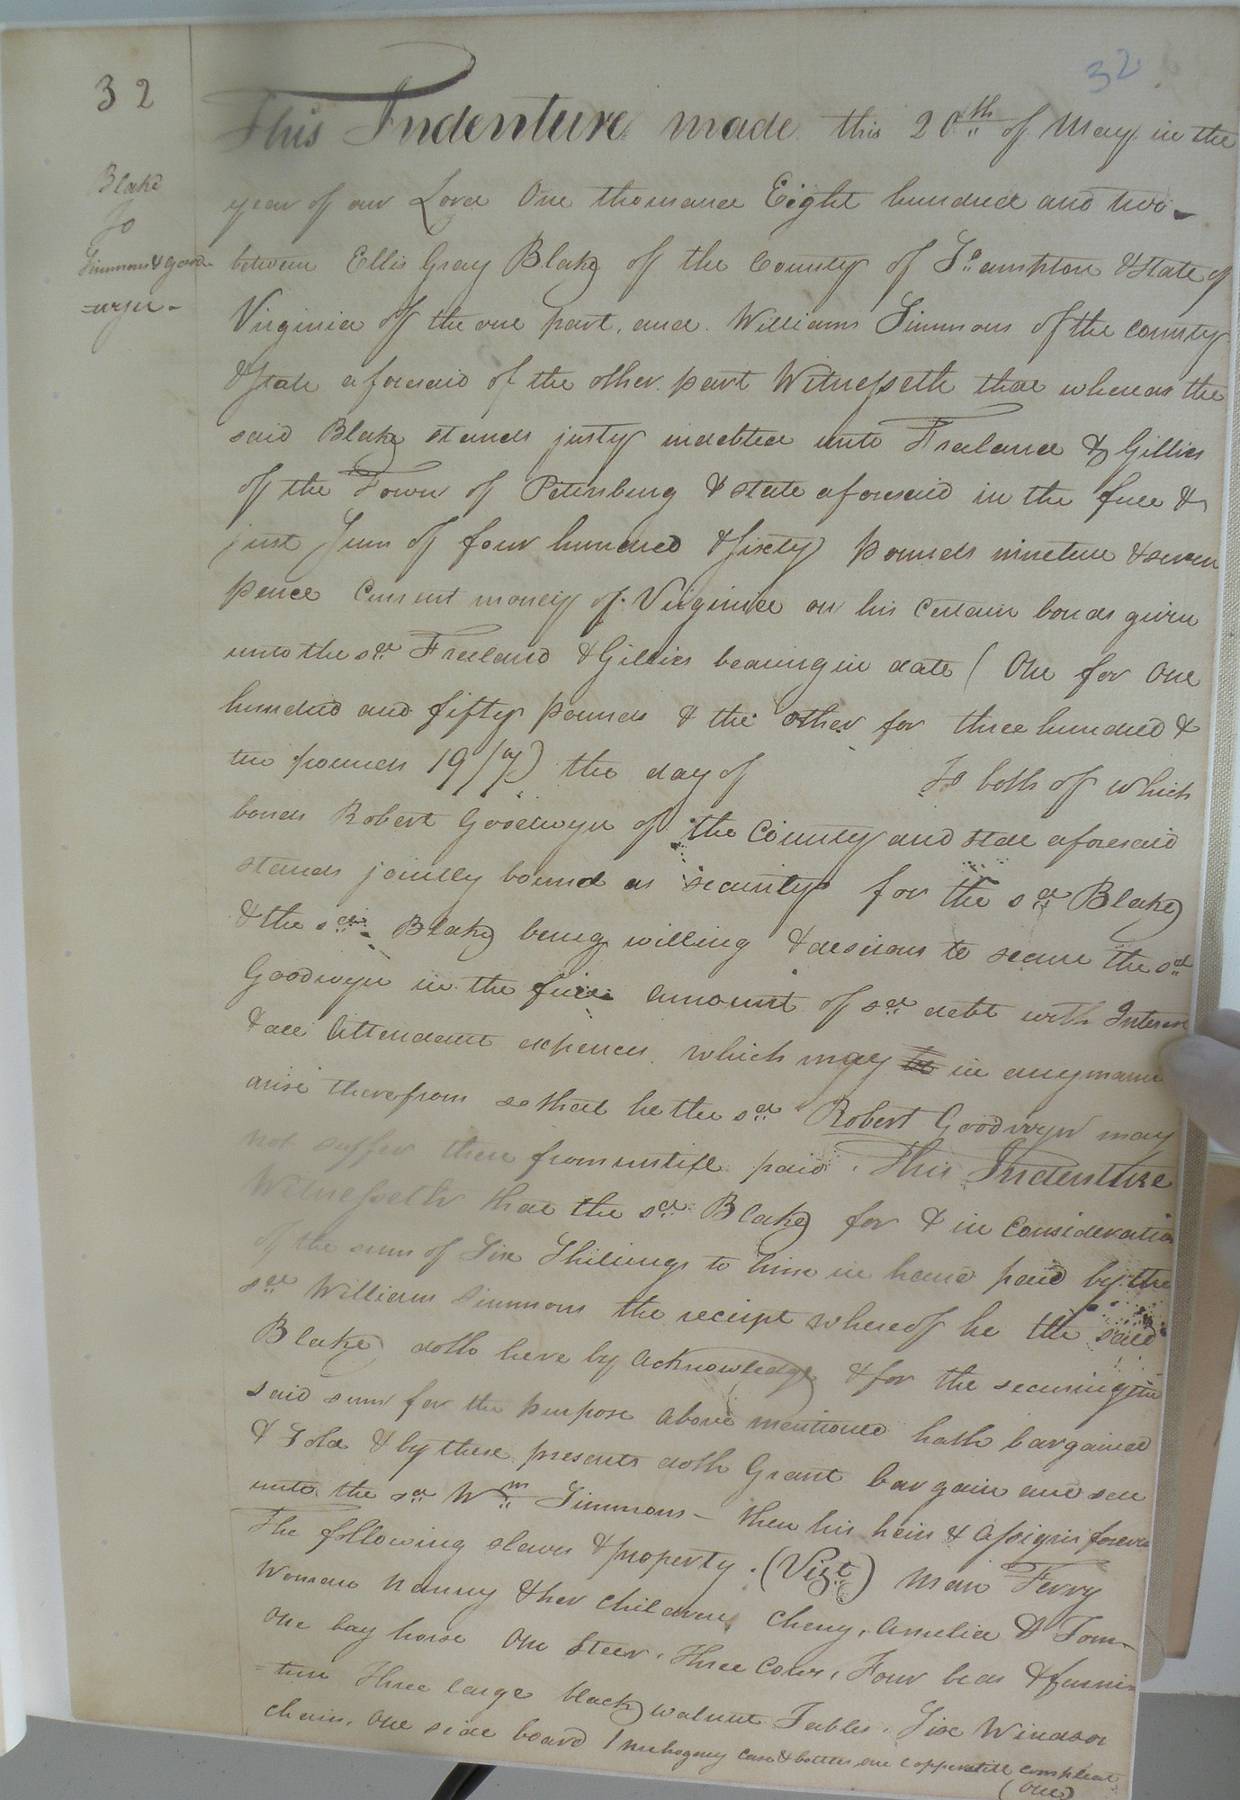 32
32
Blake
To
Simmons & Good
=wyn -
This Indenture made this 20th of May in the
year of our Lord One thousand Eight hundred and two -
between Ellis Gray Blake of the County of So.ampton & State of
Virginia of the one part, and Williams Simmons of the county
& State aforesaid of the other part Witnesseth that whereas the
said Blake stands justly indebted unto Freeland & Gillies
of the Town of Petersburg & state aforesaid in the full &
just Sum of four hundred & sixty pounds nineteen & seven
pence Current money of Virginia on his certain bonds given
unto the sd. Freeland & Gillies bearing in date ( One for One
hundred and fifty pounds & the other for three hundred &
ten pounds 19/7) the day of To both of which
bonds Robert Goodwyn of the County and state aforesaid
stands jointly bound as security for the sd. Blake
& the sd. Blake being willing & desirous to secure the sd
Goodwyn in the full amount of sd. debt with Interest
& all Attendant expences which may in any manner
arise therefrom so that he the sd. Robert Goodwyn may
not suffer there from untill paid. This Indenture
Witnesseth that the sd. Blake for & in Consideration
of the sum of Six Shillings to him in hand paid by the
sd. William Simmons the receipt whereof he the said
Blake doth here by acknowledge & for the securing the
said sum for the purpose above mentioned hath bargained
& Sold & by these presents doth Grant bargain and sell
unto the sd. Wm. Simmons - then his heirs & assigns forever
The following slaves & property. (Vizt.) Man Ferry
Woman Nanny & her Children, Cheny, Amelia & Tom -
One bay horse One Steer, Three Cows, Four beds & furni
=ture Three large black walnut Tables, Six Windsor
chairs, One side board 1 mahogany Case & bottles, one copper still compleat
(One)